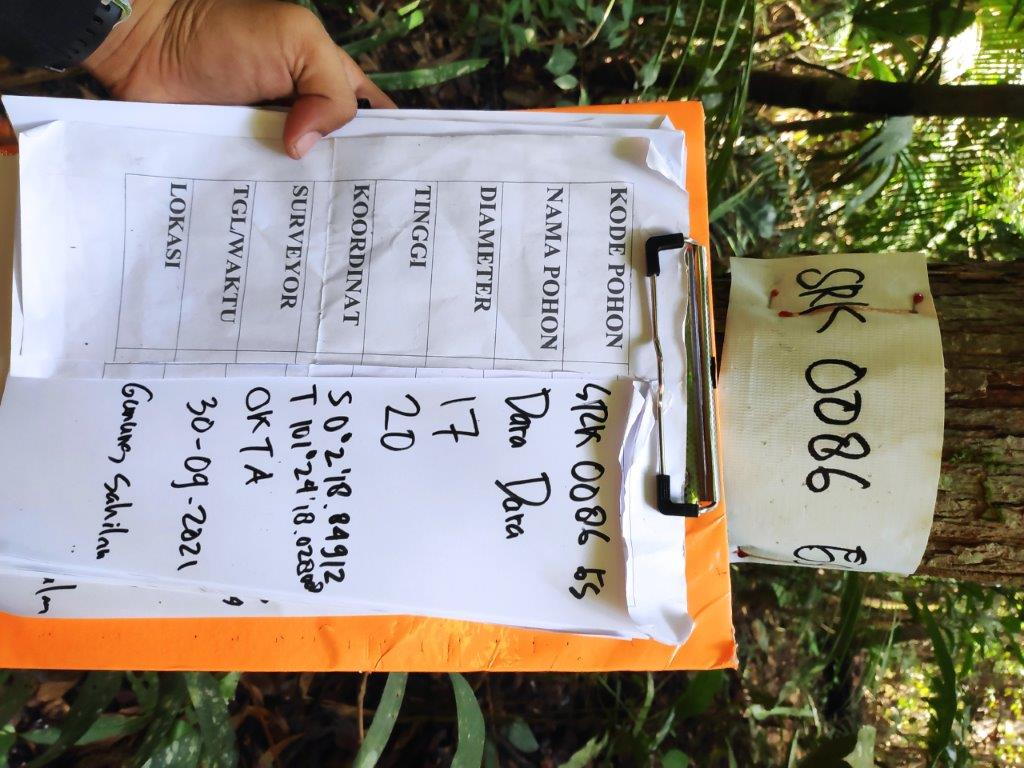 SRK 0086
KODE POHON SRK 0086 55
NAMA POHON Dara Dara
DIAMETER 17
TINGGI 20
KOORDINAT S 0°2'18.84912
T 101°24'18.02808
SURVEYOR OKTA
TGL/WAKTU 30-09-2021
LOKASI Gunung Sahilan